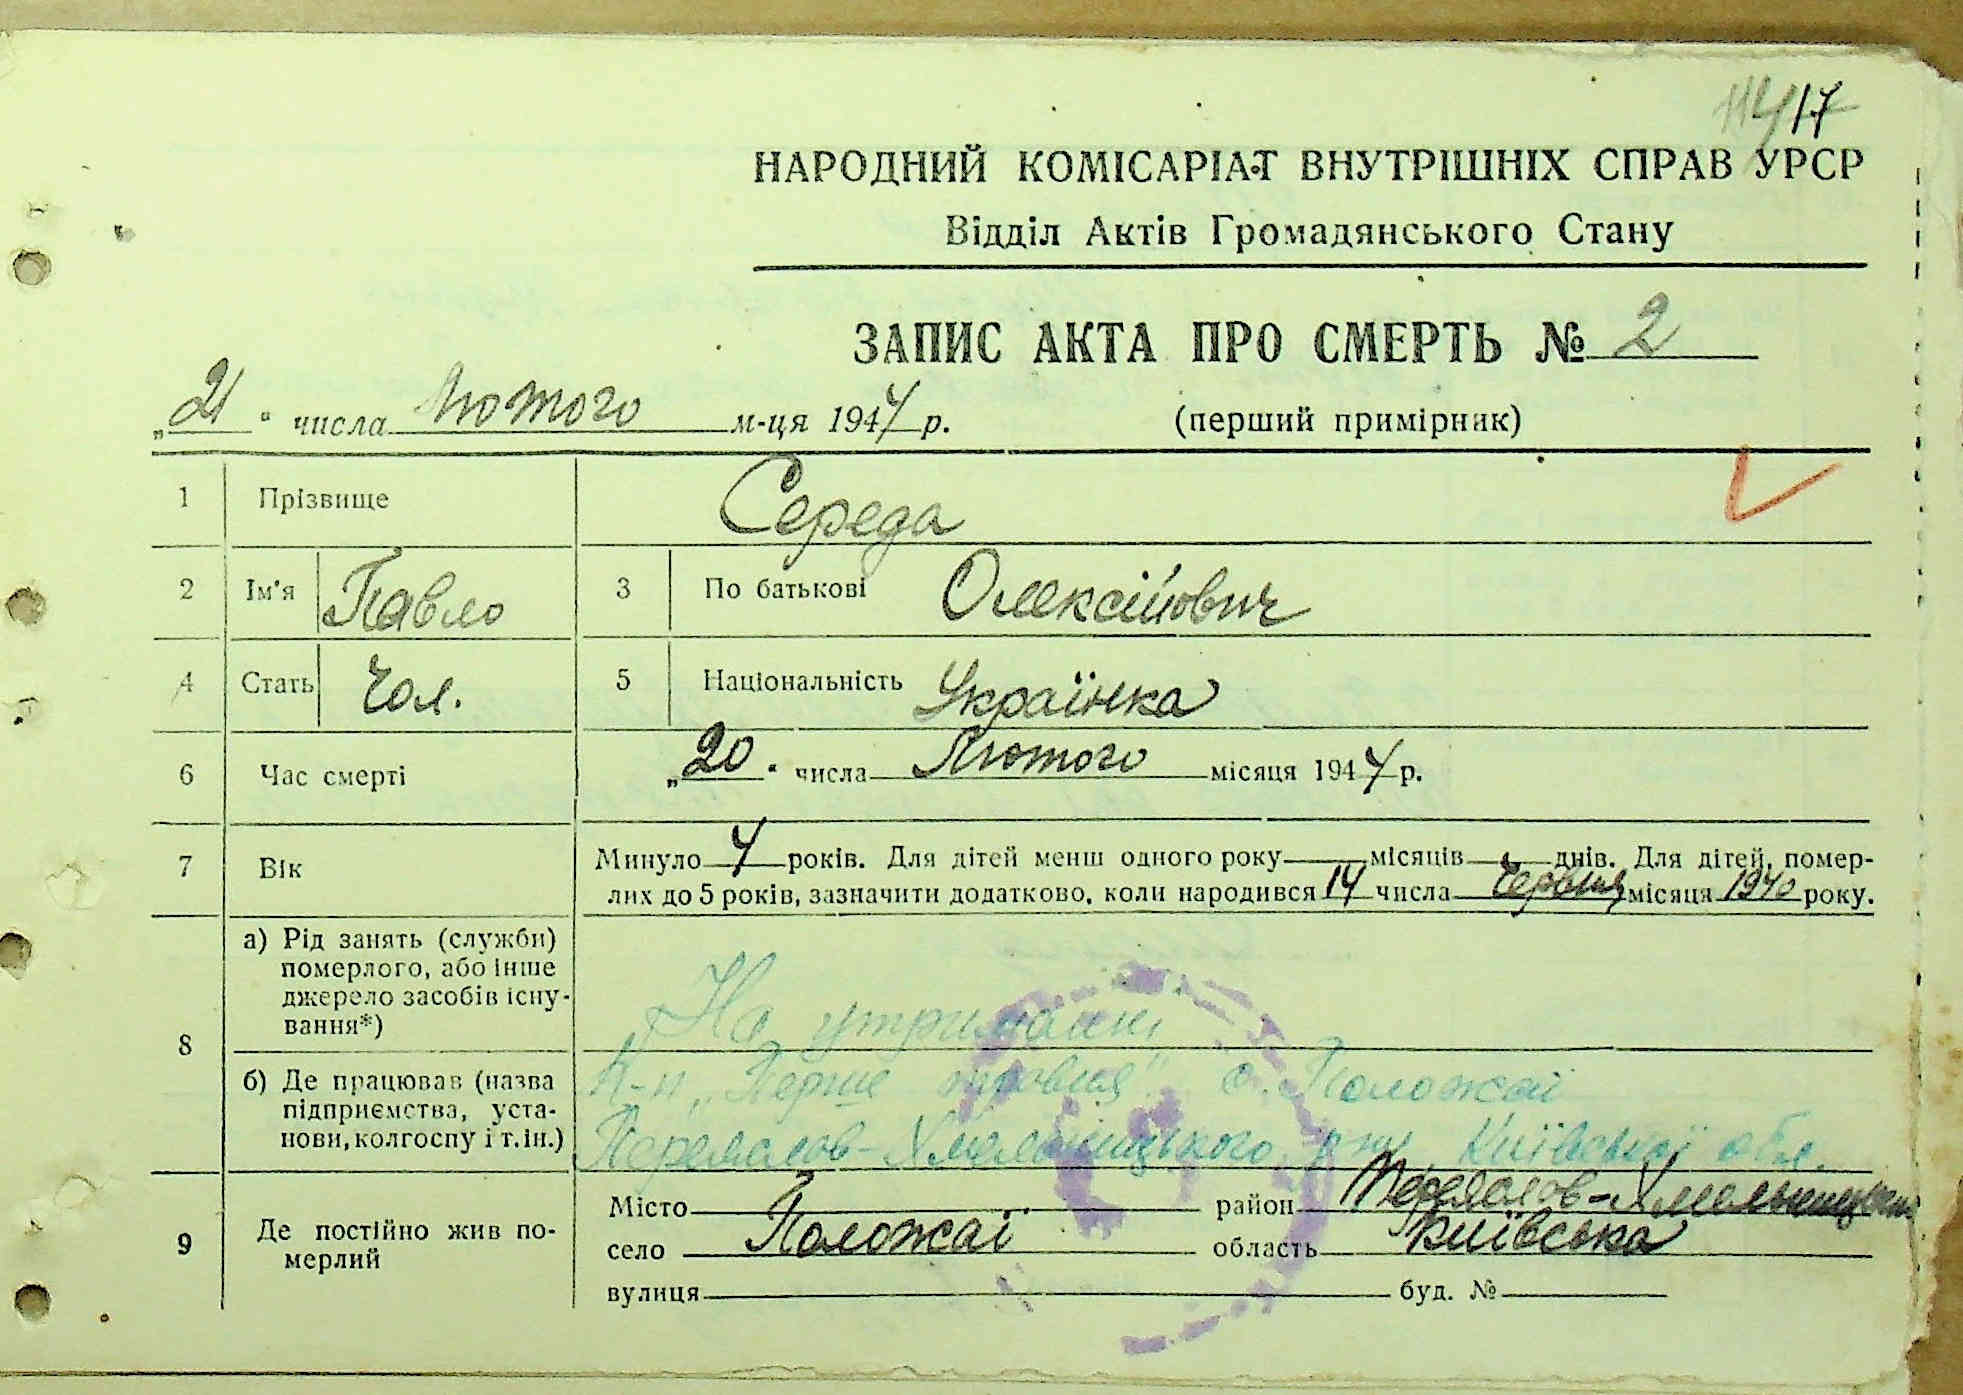 17
НАРОДНИЙ КОМІСАРІАТ ВНУТРІШНІХ СПРАВ УРСР
Відділ Актів Громадянського Стану
ЗАПИС АКТА ПРО СМЕРТЬ № 2
„21“ числа Лютого м-ця 1944 р. (перший примірник)
1 Прізвище Середа
2 Ім'я Павло 3 По батькові Олексійович
4 Стать Чол. 5 Національність Українка
6 Час смерті „20“ числа Лютого місяця 1944 р.
7 Вік Минуло 4 років. Для дітей менш одного року місяців днів. Для дітей, помер-
лих до 5 років, зазначити додатково, коли народився 14 числа Червня місяця 1940 року.
8 а) Рід занять (служби)
померлого, або інше
джерело засобів існу-
вання*)
На утриманні
б) Де працював (назва
підприємства, уста-
нови, колгоспу і т. ін.)
К-п „Перше травня" с. Положаї
Переяслов-Хмельницького р-ну Київської обл.
9 Де постійно жив по-
мерлий
Місто район Переяслов-Хмельницький
село Положаї область Київська
вулиця буд. №